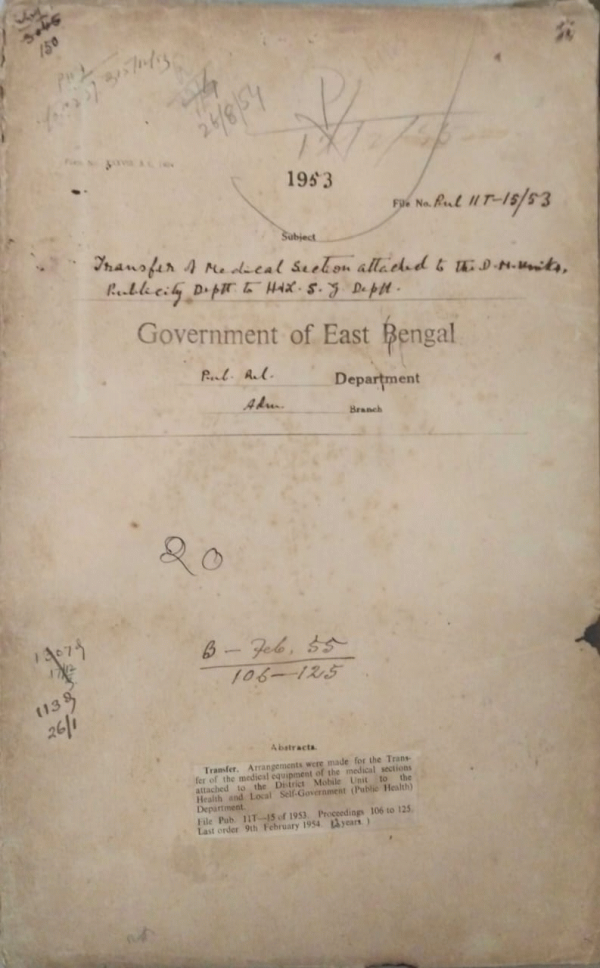 3066
150
26/8/54
1953
File No. Pub 11T-15/53
Subject
Transfer of Medical Section attached to the D.M. Units,
Publicity Deptt to H & L. S. G Deptt.
Government of East Bengal
Pub. Rel. Department
Adm. Branch
20
B - Feb. 55
106-125
1138
26/1
Abstracts.
Transfer. Arrangements were made for the Trans-
fer of the medical equipment of the medical sections
attached to the District Mobile Unit to the
Health and Local Self-Government (Public Health)
Department.
File Pub. 11T—15 of 1953. Proceedings 106 to 125.
Last order 9th February 1954. years.)